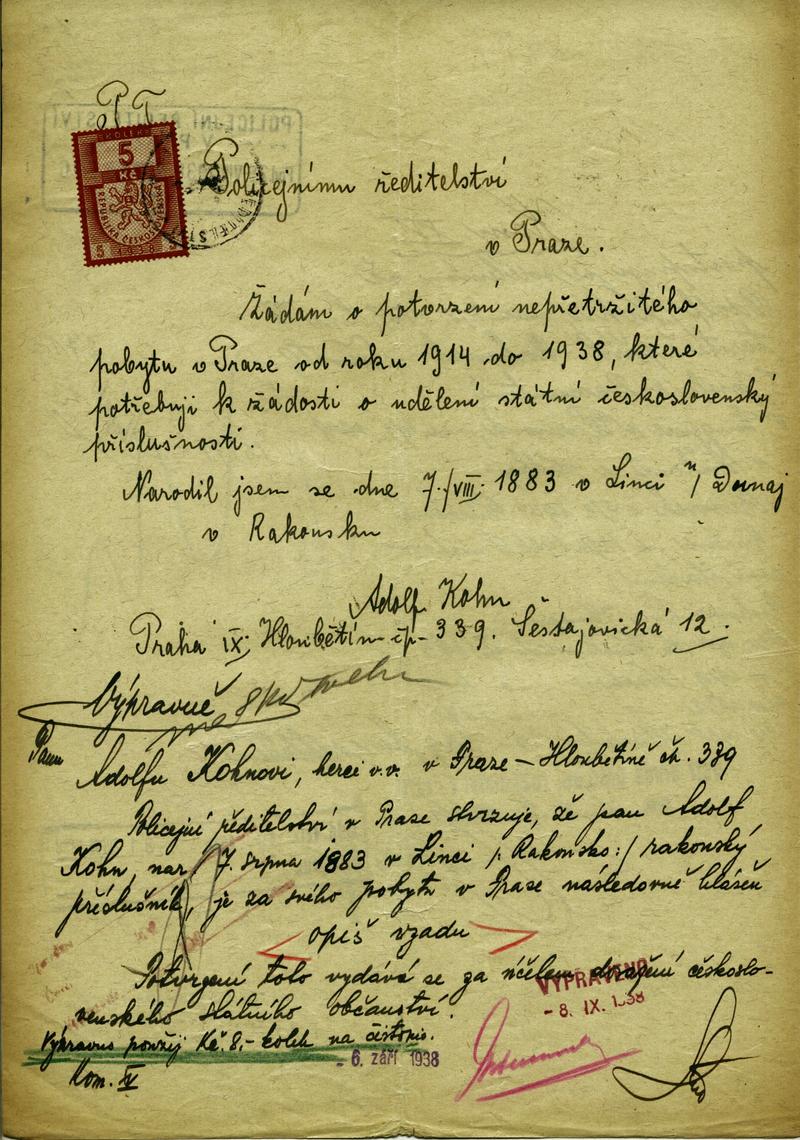 P T
KOLEK
5
Kč
REPUBLIKA ČESKOSLOVENSKÁ
5
Policejnímu ředitelství
v Praze.
Žádám o potvrzení nepřetržitého
pobytu v Praze od roku 1914 do 1938, které
potřebuji k žádosti o udělení státní československý
příslušnosti.
Narodil jsem se dne 7./VIII. 1883 v Linci n/ Dunaj
v Rakousku
Adolf Kohn
Praha IX, Hloubětín čp. 339. Šestajovická 12.
Výpravně
Panu
Adolfu Kohnovi, herci v.v. v Praze – Hloubětíně čk. 339
Policejní ředitelství v Praze stvrzuje, že pan Adolf
Kohn, nar. 7. srpna 1883 v Linci /: Rakousko :/ rakouský
příslušník, je za svého pobytu v Praze následovně hlášen
opiš vzadu
Potvrzení toto vydává se za účelem dosažení českoslo-
venského státního občanství.
VYPRAVENO
- 8. IX. 1938
Výpravno použij Kč. 8,- kolek na čistopis.
- 6. září 1938
Kom. IV